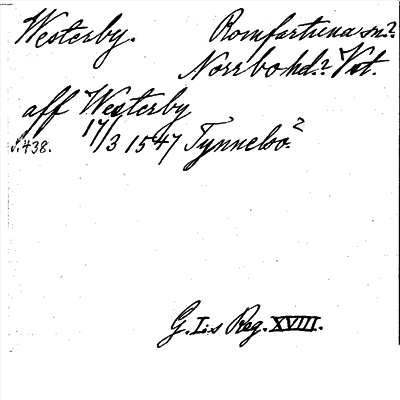 Westerby. Romfartuna sn.?
Norrbo hd.? Vst.
aff Westerby
s. 438. 17/3 1547 Tynnelsö.²
G. I:s Reg. XVIII.